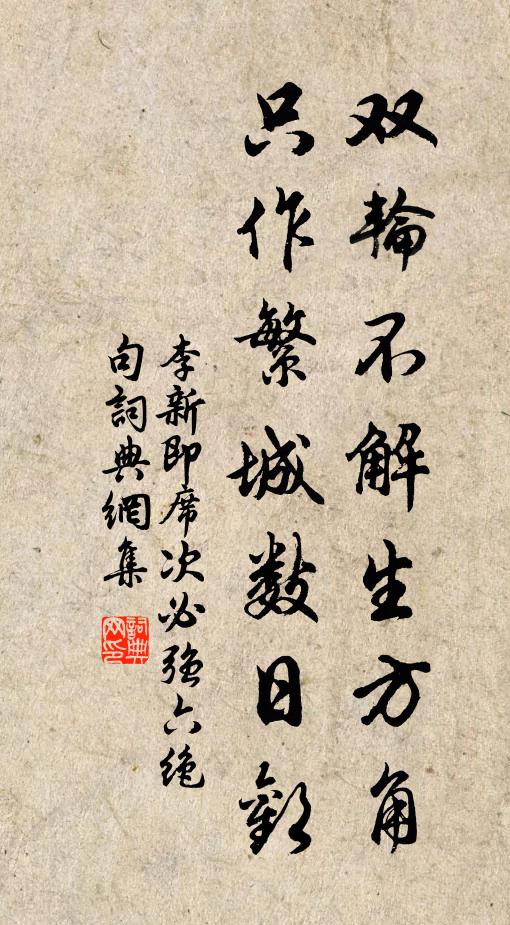 双輪不解生方角
只作繁城数日歡
李新即席次必强六绝
句詞典網集
詞典网印